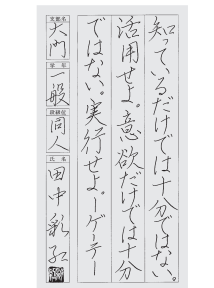 知っているだけでは十分ではない。
活用せよ。意欲だけでは十分
ではない。実行せよ。ーゲーテー
支部名 大門
学年 一般
段級位 同人
氏名 田中彩紅